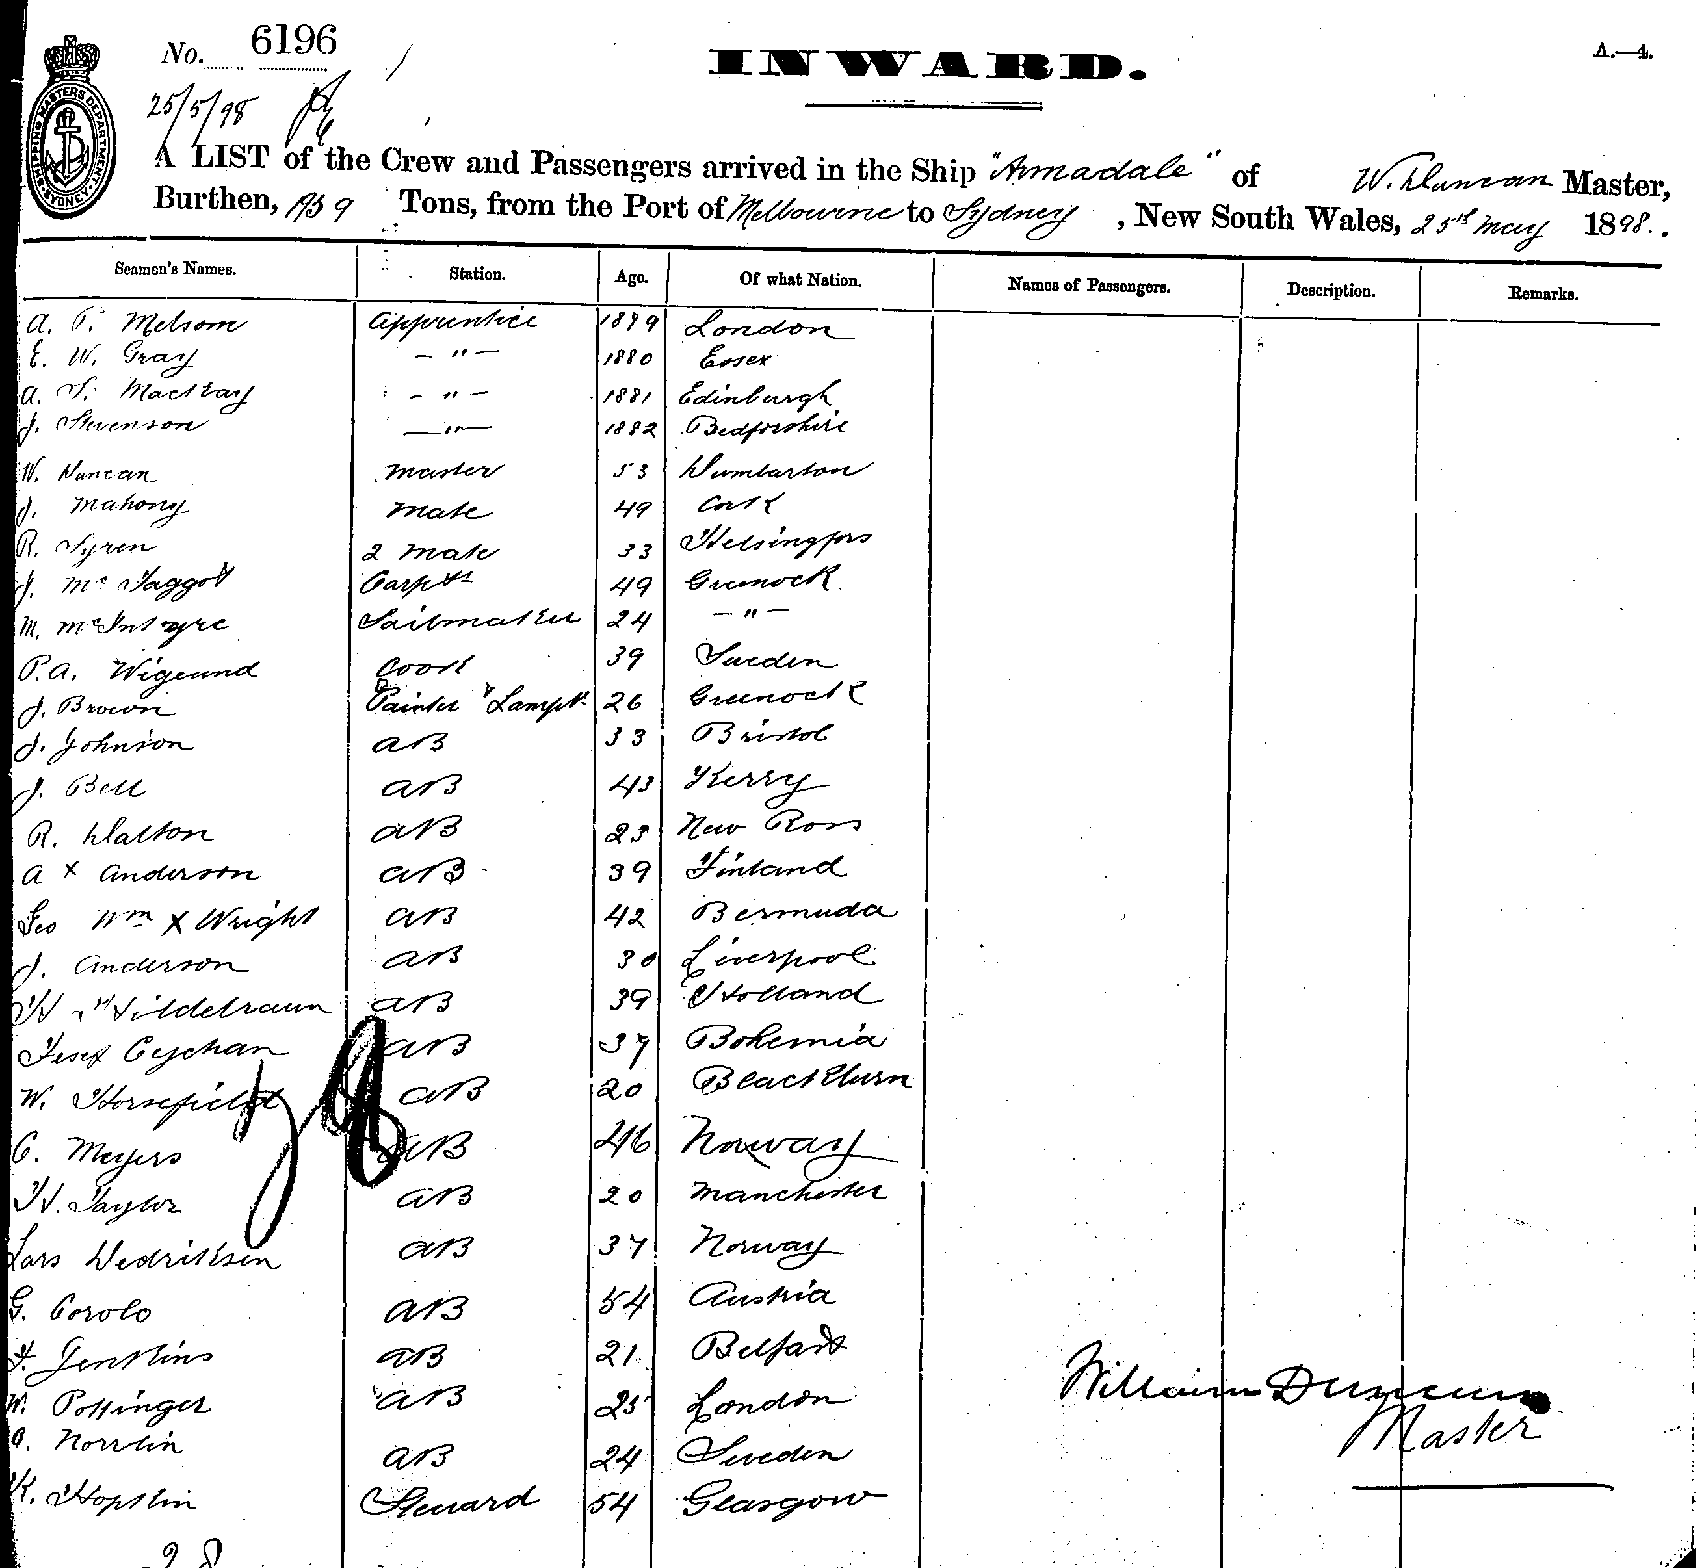 No. 6196
INWARD.
A.—4.
SHIPPING MASTERS DEPARTMENT SYDNEY
25/5/98
A LIST of the Crew and Passengers arrived in the Ship "Armadale" of W. Duncan Master,
Burthen, 1939 Tons, from the Port of Melbourne to Sydney, New South Wales, 25th May 1898.
Seamen's Names. Station. Age. Of what Nation. Names of Passengers. Description. Remarks.
A. Melsom Apprentice 1879 London
E. W. Gray — " — 1880 Essex
A. MacKay - " - 1881 Edinburgh
J. Stevenson — " — 1882 Bedfordshire
W. Duncan Master 53 Dumbarton
J. Mahony Mate 49 Cork
R. Syren 2 Mate 33 Helsingfors
J. McTaggott Carptr 49 Greenock
M. McIntyre Sailmaker 24 — " —
P.A. Wigeund Cook 39 Sweden
J. Brown Painter & Lampt 26 Greenock
J. Johnson AB 33 Bristol
J. Bell AB 43 Kerry
R. Dalton AB 23 New Ross
A x Anderson AB 39 Finland
Geo Wm X Wright AB 42 Bermuda
J. Anderson AB 30 Liverpool
H Hildebraun AB 39 Holland
Josef Cejchan AB 37 Bohemia
W. Horsefield AB 20 Blackburn
C. Meyers AB 46 Norway
H. Taylor AB 20 Manchester
Lars Dedriksen AB 37 Norway
G. Corolo AB 54 Austria
Jenkins AB 21 Belfast
W. Pottinger AB 25 London
Norrlin AB 24 Sweden
Hopkin Steward 54 Glasgow
William Duncan
Master
28